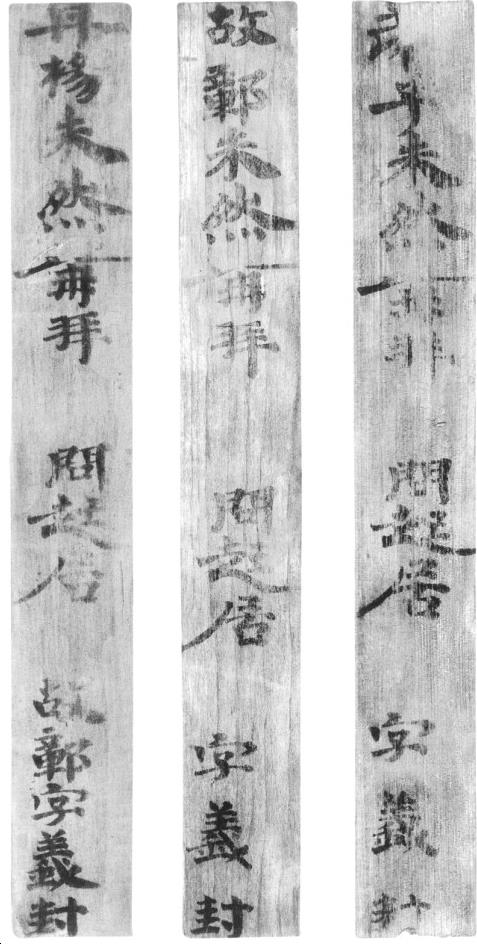 弟子朱然再拜 問起居 字義封
故鄣朱然再拜 問起居 字義封
丹楊朱然再拜 問起居 故鄣字義封